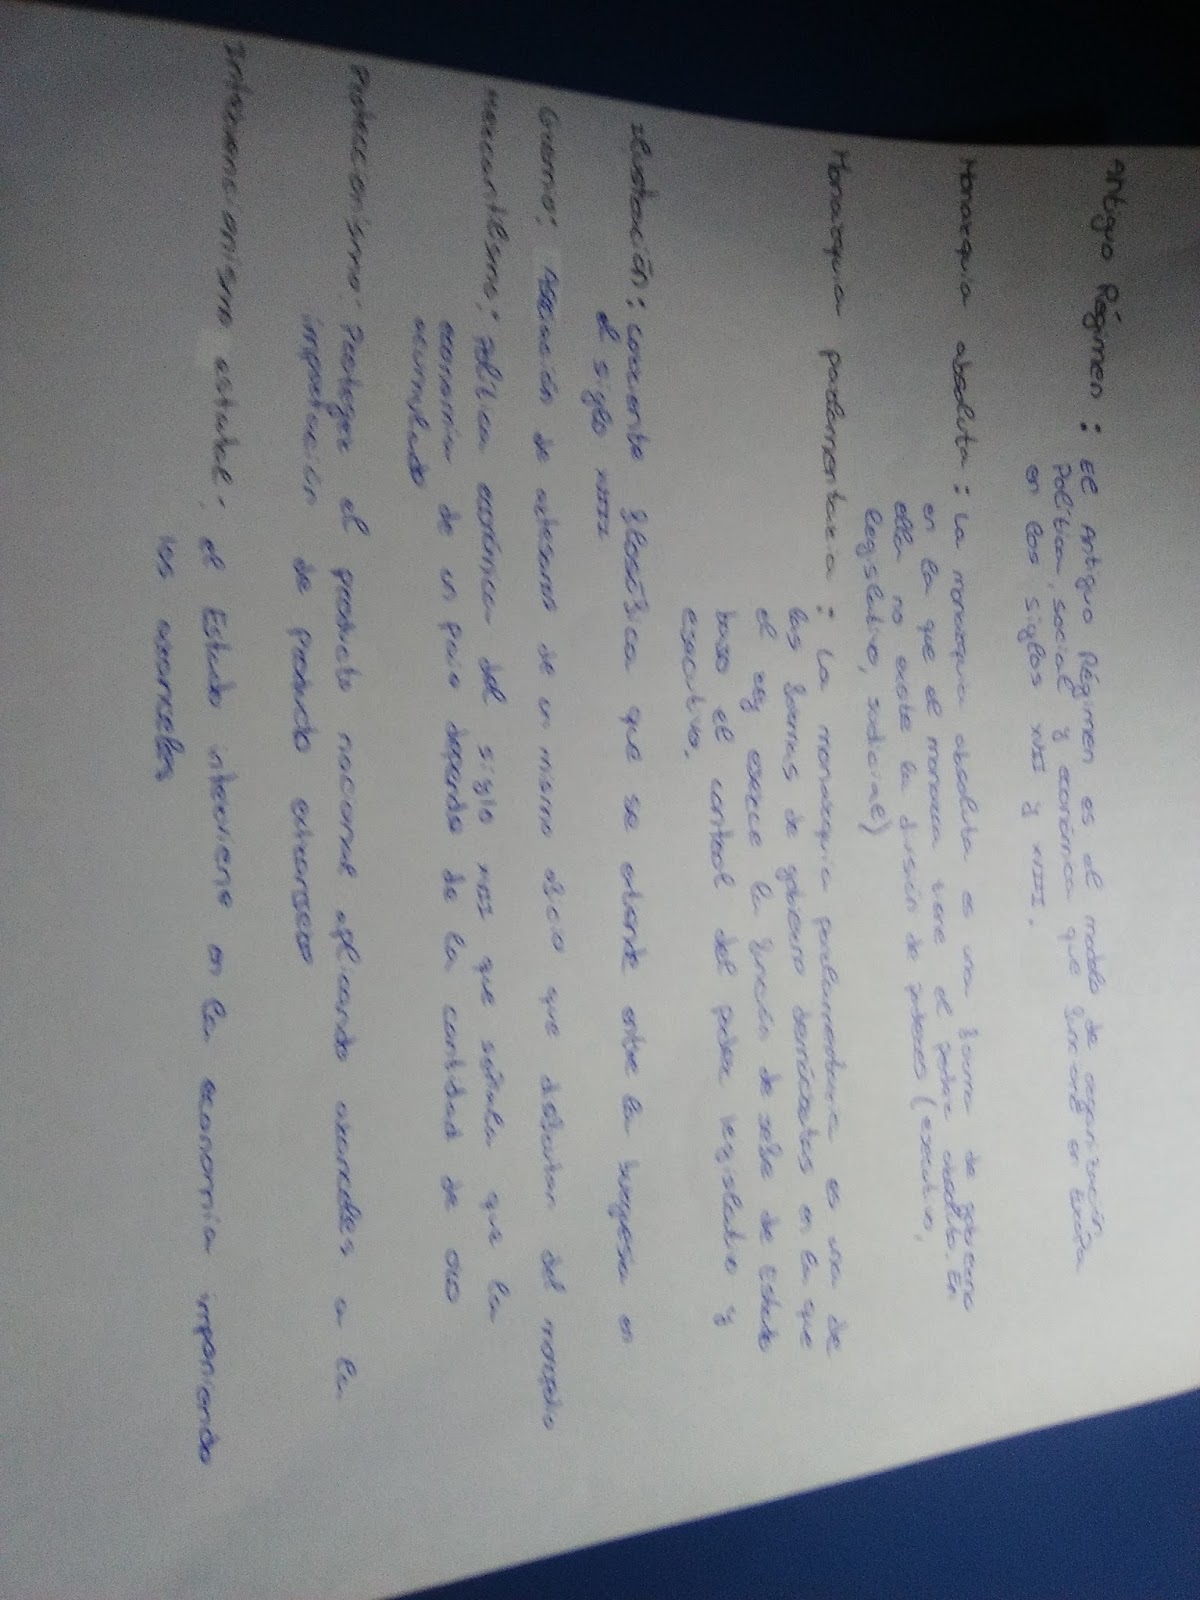 Antiguo Régimen : El Antiguo Régimen es el modelo de organización
Política, social y económica que funcionó en España
en los siglos XVII y XVIII.
Monarquia absoluta : La monarquia absoluta es una forma de gobierno
en la que el monarca tiene el poder absoluto. En
ella no existe la división de poderes (ejecutivo,
legislativo, judicial)
Monarquia parlamentaria : La monarquia parlamentaria es una de
las formas de gobierno democraticas en la que
el rey ejerce la función de jefe de Estado
bajo el control del poder legislativo y
ejecutivo.
Ilustración : corriente filosófica que se extiende entre la burguesia en
el siglo XVIII
Gremio: Asociación de artesanos de un mismo oficio que disfrutan del monopolio
Mercantilismo: Política económica del siglo XVII que señala que la
economia de un pais depende de la cantidad de oro
acumulado
Proteccionismo: Proteger el producto nacional aplicando aranceles a la
importación de producto extranjero
Intervencionismo estatal: el Estado interviene en la economia imponiendo
los aranceles